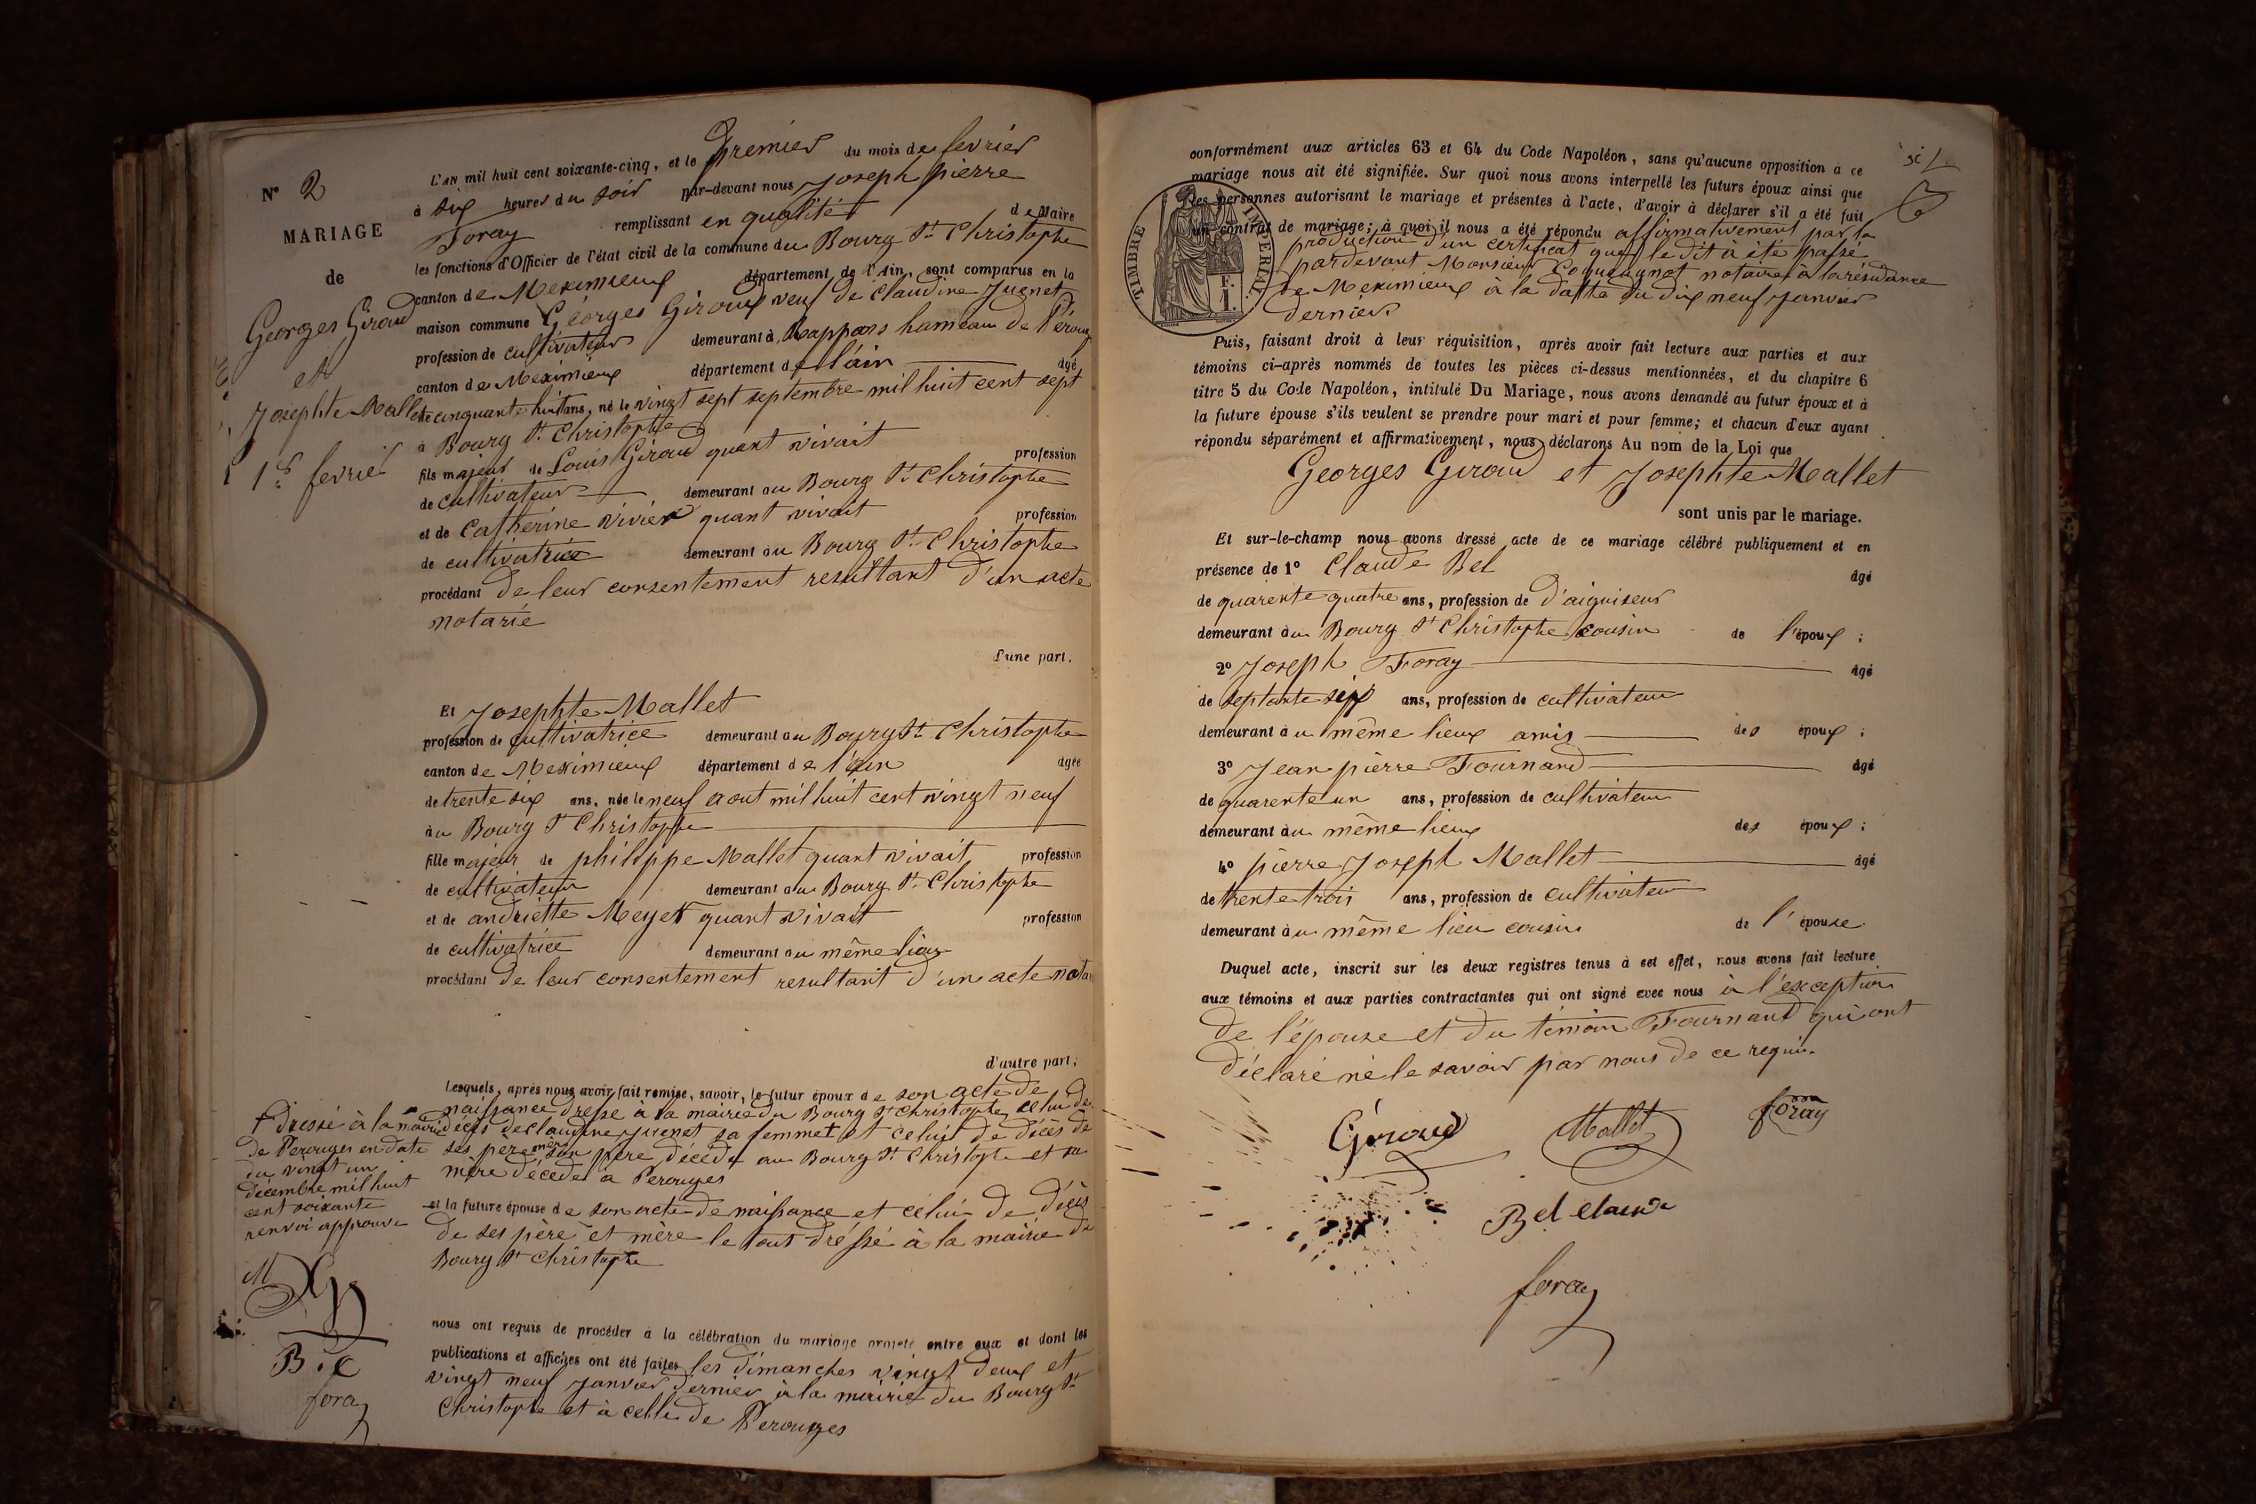 N° 2
MARIAGE
de
Georges Giroud
et
Josephte Mallet
1er fevrier
L'AN mil huit cent soixante-cinq, et le premier du mois de fevrier
à six heures du soir par-devant nous Joseph pierre
Foray remplissant en qualité de Maire
les fonctions d'Officier de l'état civil de la commune du Bourg St Christophe
canton de Meximieux département de l'Ain, sont comparus en la
maison commune Georges Giroud veuf de Claudine Juenet
profession de cultivateur demeurant à Rappans hameau de Pérouges
canton de Meximieux département de l'ain âgé
de cinquante huit ans, né le vingt sept septembre mil huit cent sept
à Bourg St Christophe
fils majeur de Louis Giroud quant vivait profession
de cultivateur demeurant au Bourg St Christophe
et de Catherine Vivier quant vivait profession
de cultivatrice demeurant au Bourg St Christophe
procédant de leur consentement resultant d'un acte
notarié
d'une part.
Et Josephte Mallet
profession de cultivatrice demeurant au Bourg St Christophe
canton de Meximieux département de l'ain agée
de trente six ans, née le neuf aout mil huit cent vingt neuf
au Bourg St Christophe
fille majeur de philippe Mallet quant vivait profession
de cultivateur demeurant au Bourg St Christophe
et de andriette Meyet quant vivait profession
de cultivatrice demeurant au même lieu
procédant de leur consentement resultant d'un acte notar
d'autre part;
Lesquels, après nous avoir fait remise, savoir, le futur époux de son acte de
naissance dressé à la mairie du Bourg St Christophe, celui de
décès de Claudine Juenet sa femme † et celui de décès de
ses père et mère son père décédé au Bourg St Christophe et sa
mère décédée à Perouges
† dressé à la mairie
de Perouges en date
du vingt un
décembre mil huit
cent soixante
renvoi approuvé
et la future épouse de son acte de naissance et celui de décès
de ses père et mère le tout dréssé à la mairie du
Bourg St Christophe
M G
B. C
foray
nous ont requis de procéder à la célébration du mariage projeté entre eux et dont les
publications et affiches ont été faites les dimanches vingt deux et
vingt neuf Janvier dernier à la mairie du Bourg St
Christophe et à celle de Perouges
conformément aux articles 63 et 64 du Code Napoléon, sans qu'aucune opposition à ce
mariage nous ait été signifiée. Sur quoi nous avons interpellé les futurs époux ainsi que
les personnes autorisant le mariage et présentes à l'acte, d'avoir à déclarer s'il a été fait
un contrat de mariage; à quoi il nous a été répondu affirmativement par la
production d'un certificat que le dit à été passé
pardevant Monsieur Coquaugnot notaire à la résidance
de Meximieux à la datte du dix neuf Janvier
dernier.
TIMBRE IMPÉRIAL
1 F.
Puis, faisant droit à leur réquisition, après avoir fait lecture aux parties et aux
témoins ci-après nommés de toutes les pièces ci-dessus mentionnées, et du chapitre 6
titre 5 du Code Napoléon, intitulé Du Mariage, nous avons demandé au futur époux et à
la future épouse s'ils veulent se prendre pour mari et pour femme; et chacun d'eux ayant
répondu séparément et affirmativement, nous déclarons Au nom de la Loi que
Georges Giroud et Josephte Mallet
sont unis par le mariage.
Et sur-le-champ nous avons dressé acte de ce mariage célébré publiquement et en
présence de 1° Claude Bel âgé
de quarente quatre ans, profession de d'aiguiseur
demeurant au Bourg St Christophe cousin de l'époux;
2° Joseph Foray âgé
de septante six ans, profession de cultivateur
demeurant au même lieux amis des époux;
3° Jean pierre Fournand âgé
de quarente un ans, profession de cultivateur
demeurant au même lieux des époux;
4° pierre Joseph Mallet âgé
de trente trois ans, profession de cultivateur
demeurant au même lieu cousin de l'épouse
Duquel acte, inscrit sur les deux registres tenus à cet effet, nous avons fait lecture
aux témoins et aux parties contractantes qui ont signé avec nous à l'exception
de l'épouse et du témoin Fournand qui ont
déclaré ne le savoir par nous de ce requis.
Giroud Mallet foray
Bel claude
foray